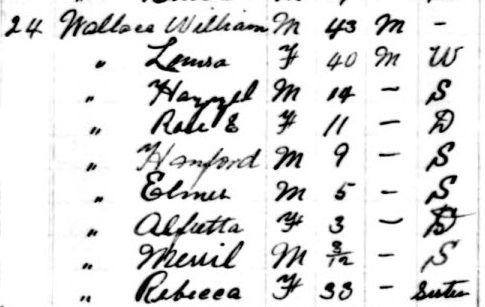 24 Wallace William M 43 M -
" Louisa F 40 M W
" Hazzel M 14 - S
" Rose E F 11 - D
" Hanford M 9 - S
" Elmer M 5 - S
" Alfretta F 3 - D
" Merril M 3/12 - S
" Rebecca F 33 - Sister